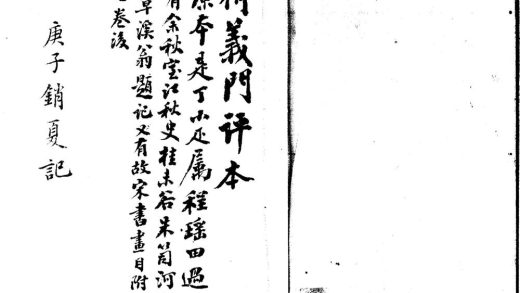 何義門评本
原本是丁小疋属程瑶田過
有余秋室江秋史桂未谷朱笥河
覃溪翁題記又有故宋書畫目附
卷後
庚子銷夏記